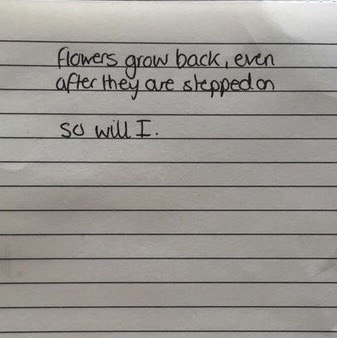 flowers grow back, even
after they are stepped on
so will I.